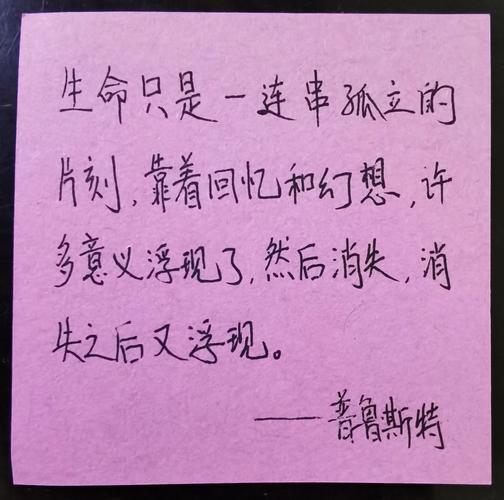 生命只是一连串孤立的
片刻,靠着回忆和幻想,许
多意义浮现了,然后消失,消
失之后又浮现。
——普鲁斯特